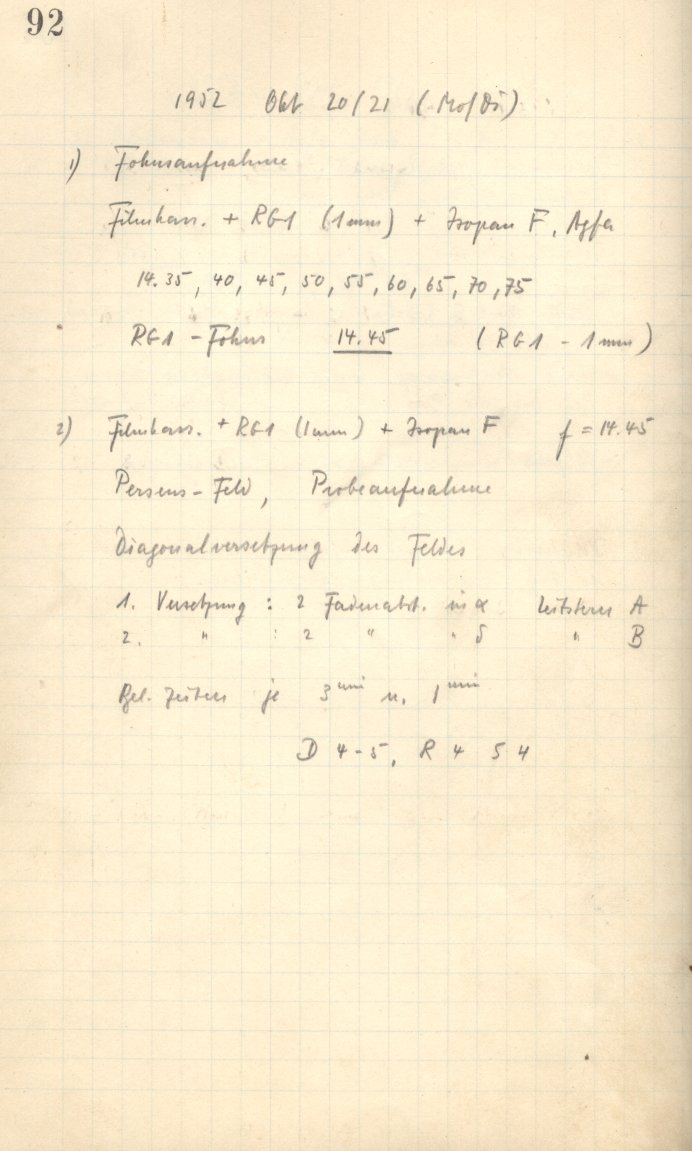 92
1952 Okt 20/21 (Mo/Di)
1) Fokusaufnahme
Filmkass. + RG1 (1mm) + Isopan F, Agfa
14.35, 40, 45, 50, 55, 60, 65, 70, 75
RG1 - Fokus 14.45 (RG1 - 1mm)
2) Filmkass. + RG1 (1mm) + Isopan F f = 14.45
Perseus-Feld, Probeaufnahme
Diagonalversetzung des Feldes
1. Versetzung : 2 Fadenabst. in α Leitstern A
2. " : 2 " " δ " B
Bel. Zeiten je 3 min u. 1 min
D 4-5, R 4 S 4